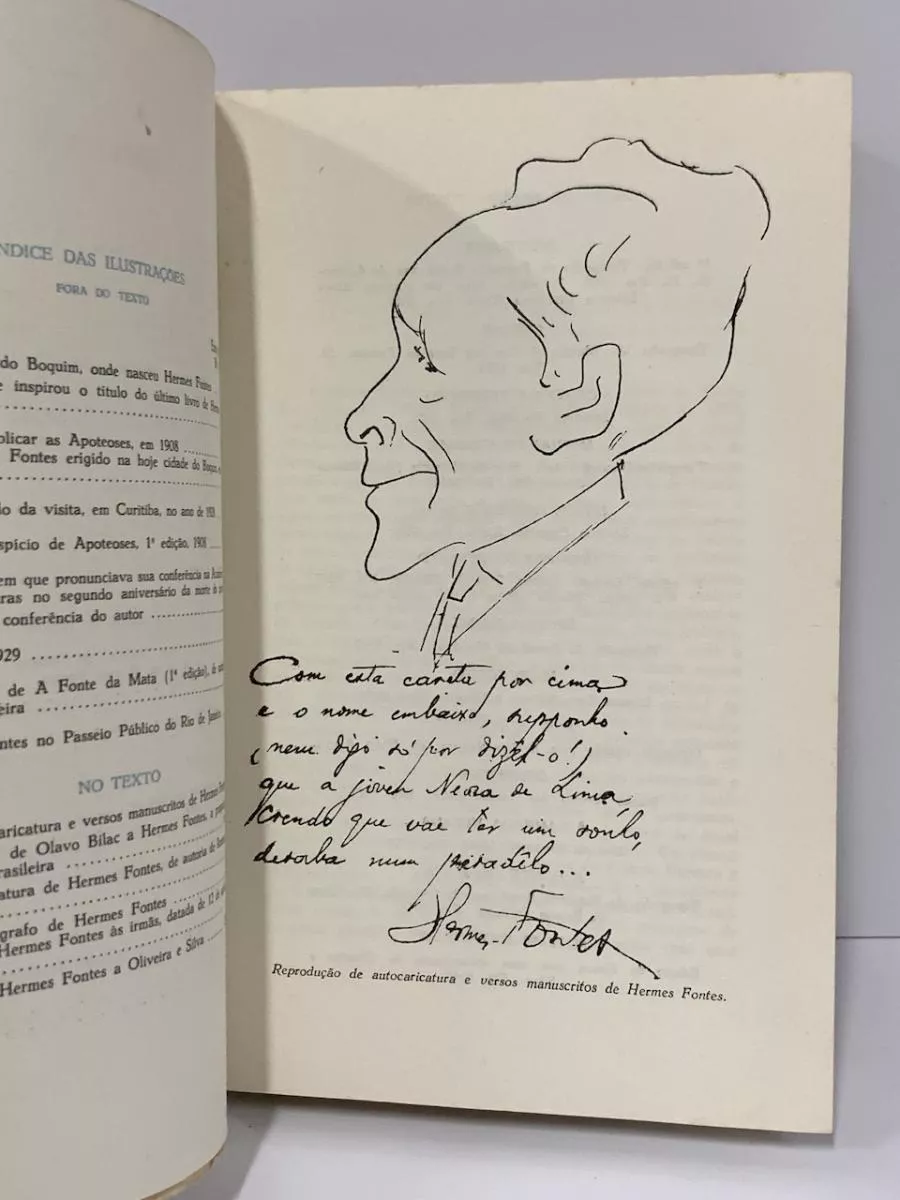 NDICE DAS ILUSTRAÇÕES
FORA DO TEXTO
do Boquim, onde nasceu Hermes Fontes
e inspirou o título do último livro de
plicar as Apoteoses, em 1908
Fontes erigido na hoje cidade do
o da visita, em Curitiba, no ano de
spício de Apoteoses, 1ª edição, 1908
em que pronunciava sua conferência na
ras no segundo aniversário da morte do
conferência do autor
929
de A Fonte da Mata (1ª edição), de
eira
ntes no Passeio Público do Rio de Janeiro
NO TEXTO
aricatura e versos manuscritos de Hermes
de Olavo Bilac a Hermes Fontes, a
rasileira
atura de Hermes Fontes, de autoria de
grafo de Hermes Fontes
Hermes Fontes às irmãs, datada de 12 de
Hermes Fontes a Oliveira e Silva
Com esta careta por cima
e o nome embaixo, supponho
(nem digo só por dizêl-o!)
que a jóven Neora de Lima,
crendo que vae ter um sonho,
desaba num pesadêlo...
Hermes-Fontes
Reprodução de autocaricatura e versos manuscritos de Hermes Fontes.